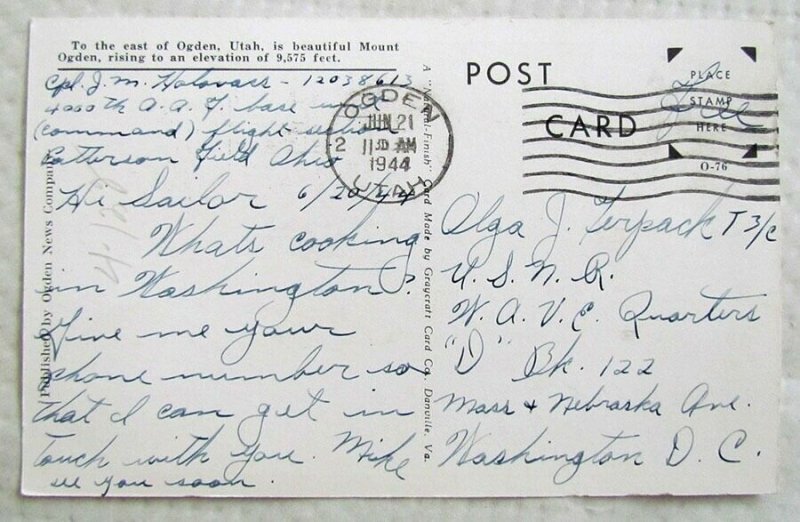 To the east of Ogden, Utah, is beautiful Mount
Ogden, rising to an elevation of 9,575 feet.
Cpl. J. M. Holovacs - 12038613
4000th A. A. F. base unit
(command) flight section
Patterson Field Ohio
Hi Sailor 6/20/44
Whats cooking
in Washington?
Give me your
phone number so
that I can get in
touch with you. Mike
see you soon.
Published by Ogden News Company
A "Natural-Finish" Card Made by Graycraft Card Co., Danville, Va.
OGDEN
JUN 21
2 11 30 AM
1944
UTAH
POST CARD
PLACE
STAMP
HERE
O-76
Free
Olga J. Terpack T 3/c
U. S. N. R.
W. A. V. E. Quarters
"D" Bk. 122
Mass + Nebraska Ave.
Washington D. C.